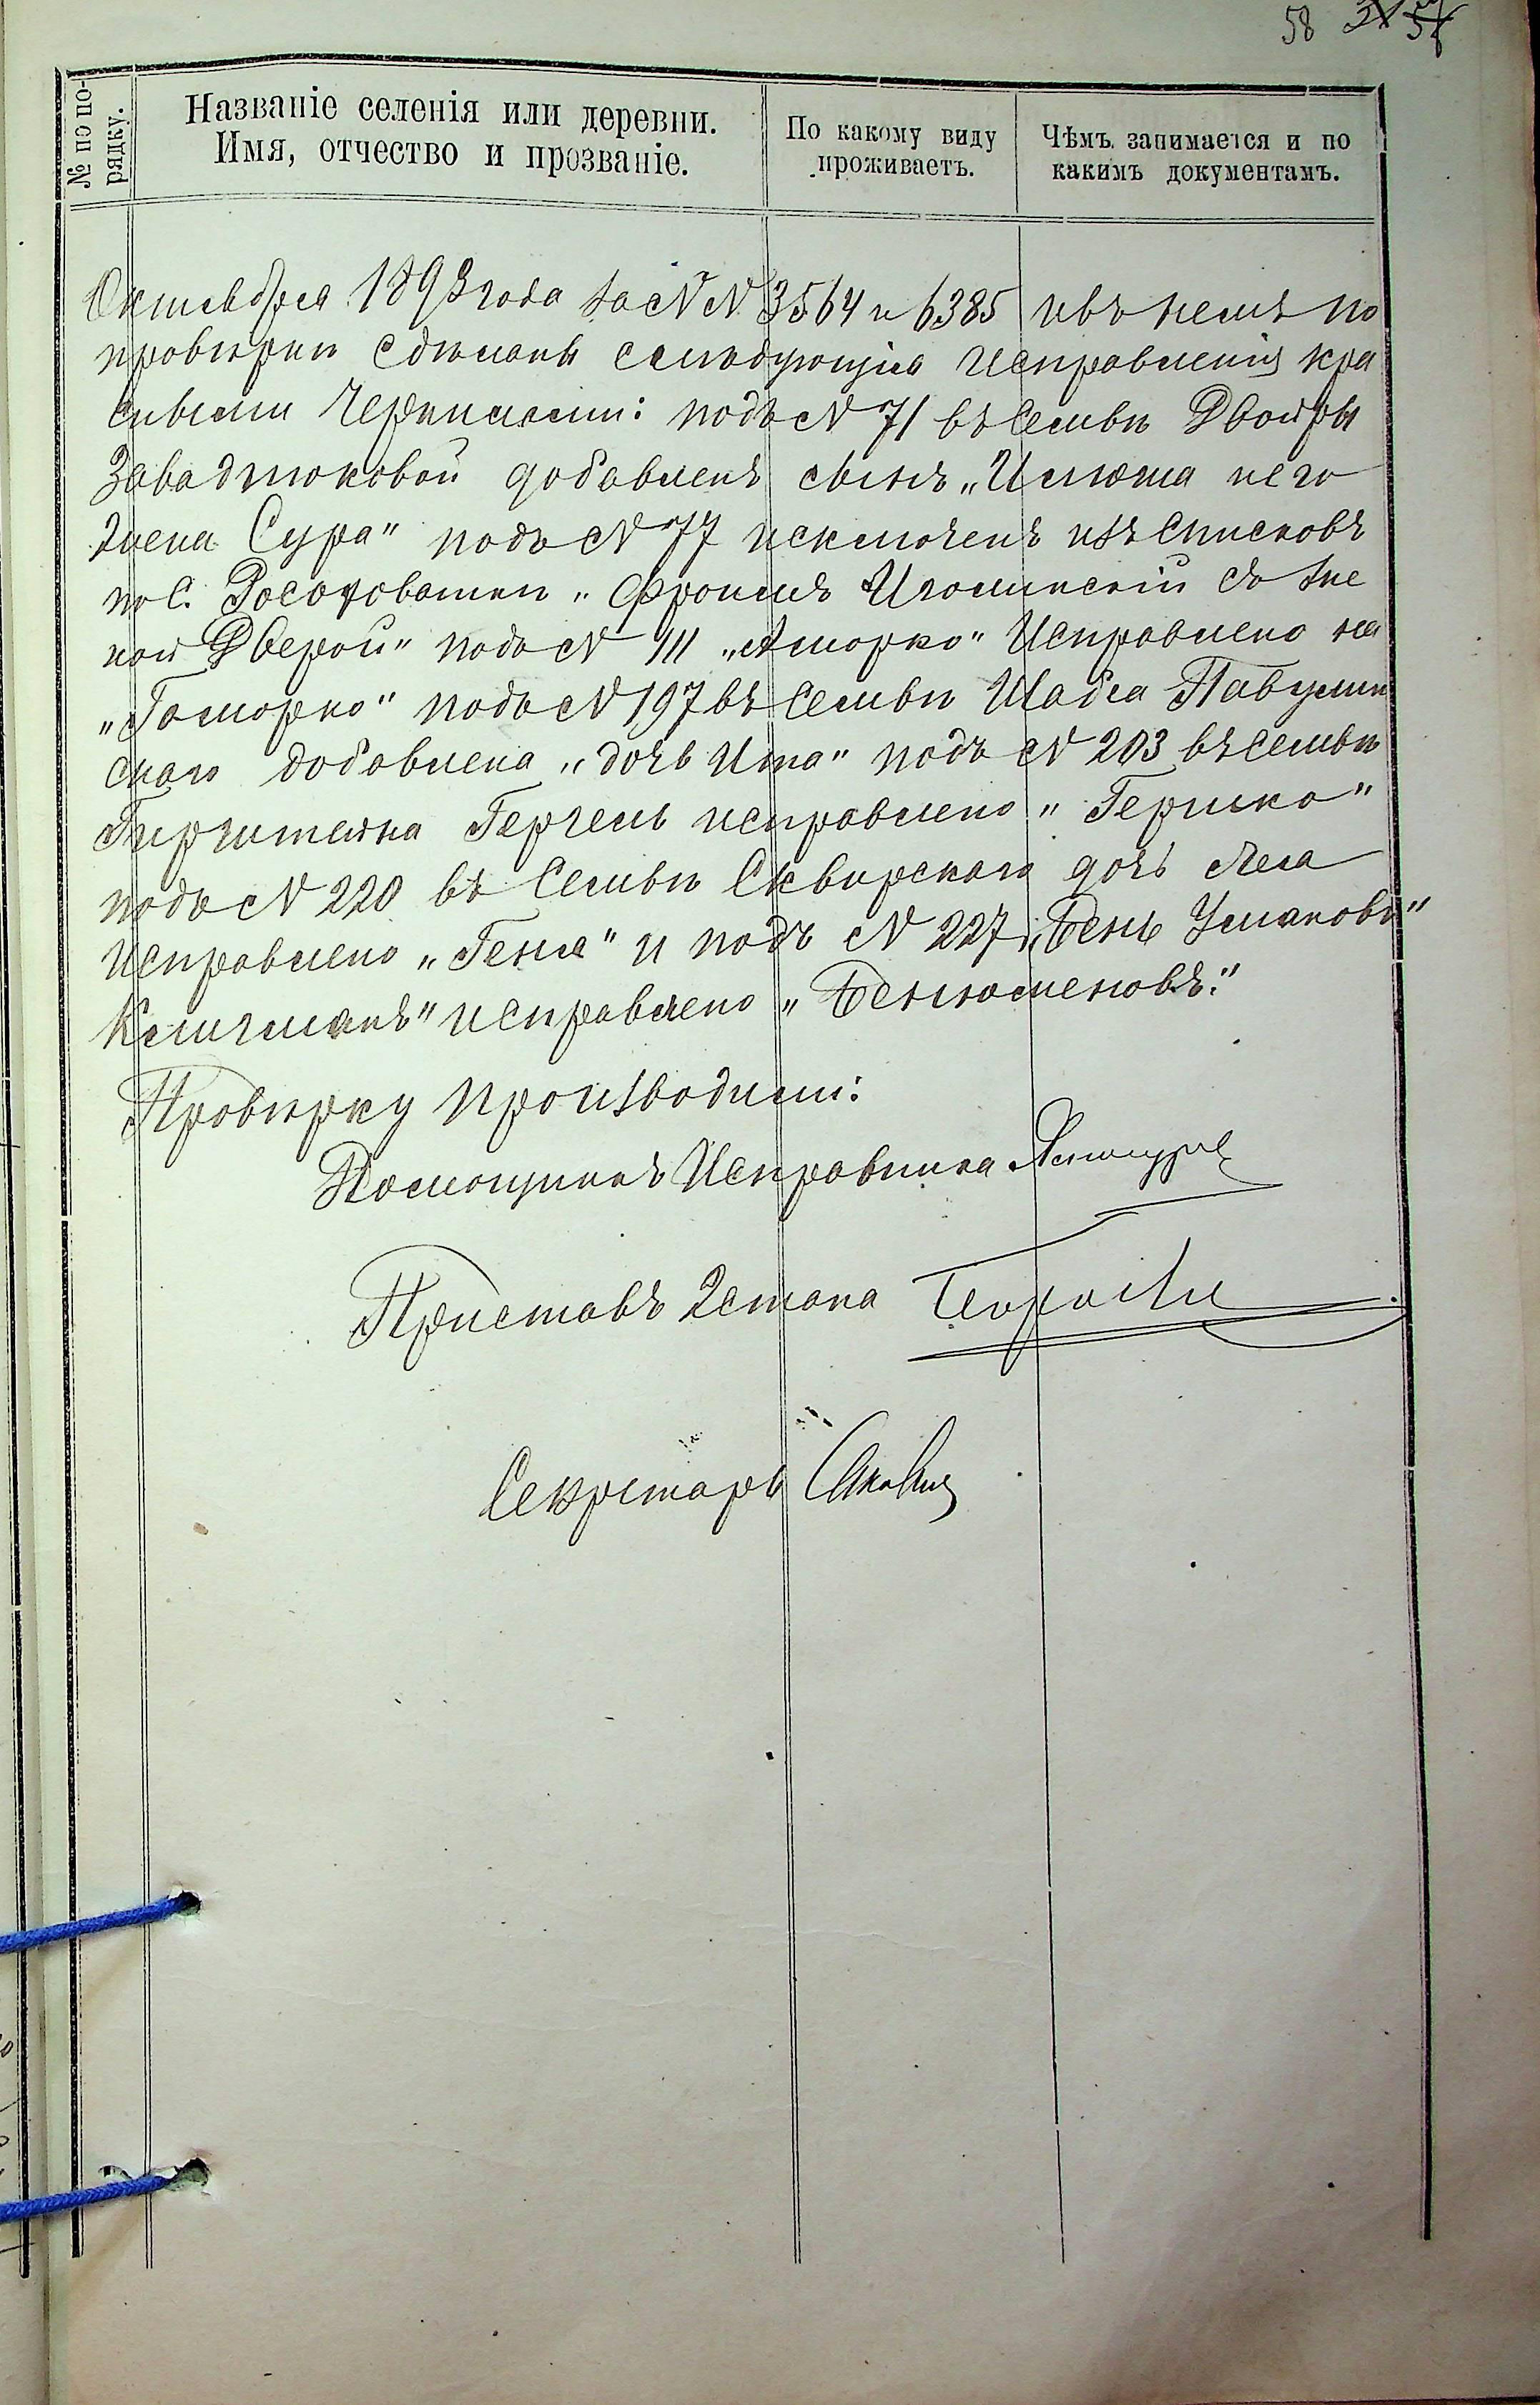 58
№ по по-
рядку.
Названіе селенія или деревни.
Имя, отчество и прозваніе.
По какому виду
проживаетъ.
Чѣмъ занимается и по
какимъ документамъ.
Октября 1893 года за №№ 3564 и 6385 и въ немъ по
провѣрки сдѣланы слѣдующія исправленія кра
сными чернилами: подъ № 71 въ семьѣ Двойры
Завадюковой добавленъ сынъ „Илюта и его
жена Сура" подъ № 77 исключенъ изъ списковъ
по с. Росоховаткѣ „Фроимъ Иголинскій съ же
ной Дверой" подъ № 111 „Аморко" исправлено на
„Гаморко" подъ № 197 въ семьѣ Шабса Павулин
скаго добавлена „дочь Ита" подъ № 203 въ семьѣ
Гирштейна Герчель исправлено „Гершко"
подъ № 220 въ семьѣ Сквирскаго дочь Леа
исправлено „Геня" и подъ № 227 „Бень Улиановъ
Клигманъ" исправлено „Беньюменовъ."
Провѣрку производили:
Помощникъ Исправника
Приставъ 2 стана
Секретарь